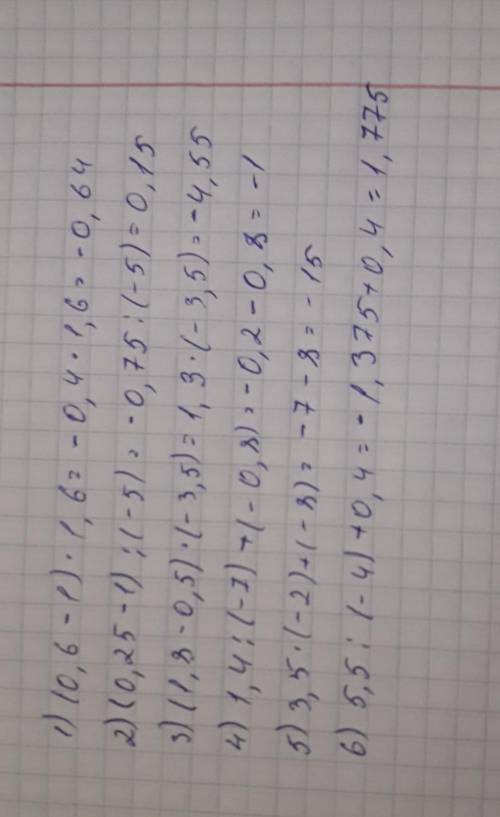 1) (0,6 - 1) · 1,6 = -0,4 · 1,6 = -0,64
2) (0,25 - 1) : (-5) = -0,75 : (-5) = 0,15
3) (1,8 - 0,5) · (-3,5) = 1,3 · (-3,5) = -4,55
4) 1,4 : (-7) + (-0,8) = -0,2 - 0,8 = -1
5) 3,5 · (-2) + (-8) = -7 - 8 = -15
6) 5,5 : (-4) + 0,4 = -1,375 + 0,4 = 1,775